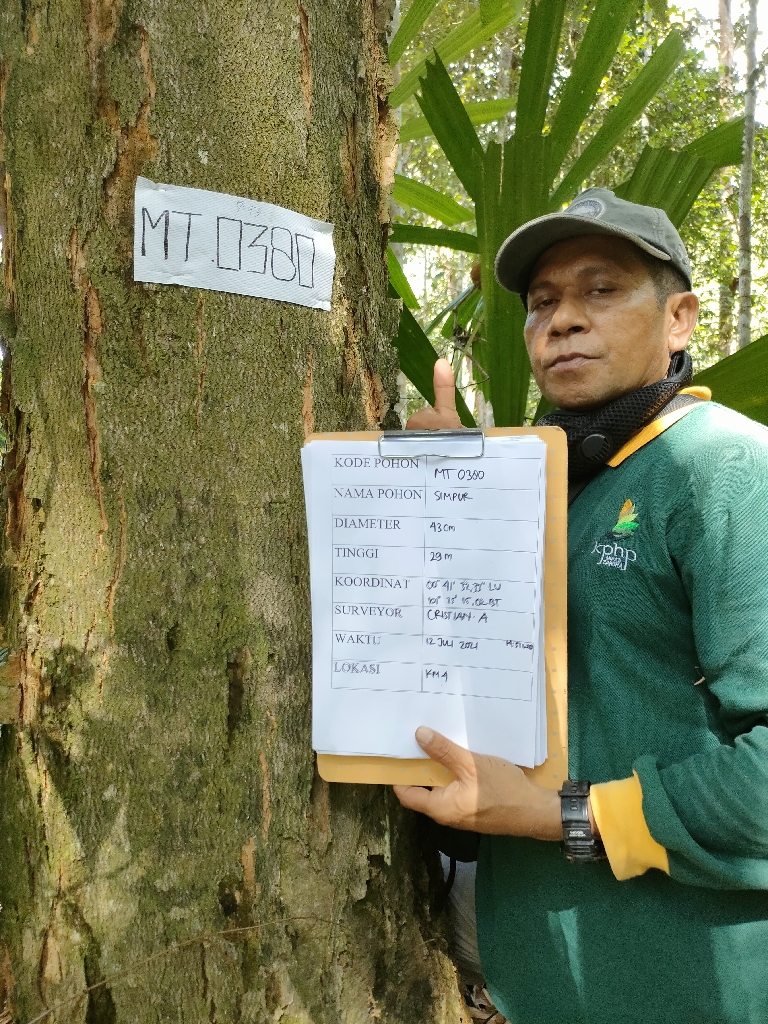 MT.0380
KODE POHON MT 0380
NAMA POHON SIMPUR
DIAMETER 43 cm
TINGGI 29 m
KOORDINAT 00° 41' 32,35" LU
101° 25' 15,02 BT
SURVEYOR CRISTIAN. A
WAKTU 12 JULI 2021
LOKASI KM 4
kphp